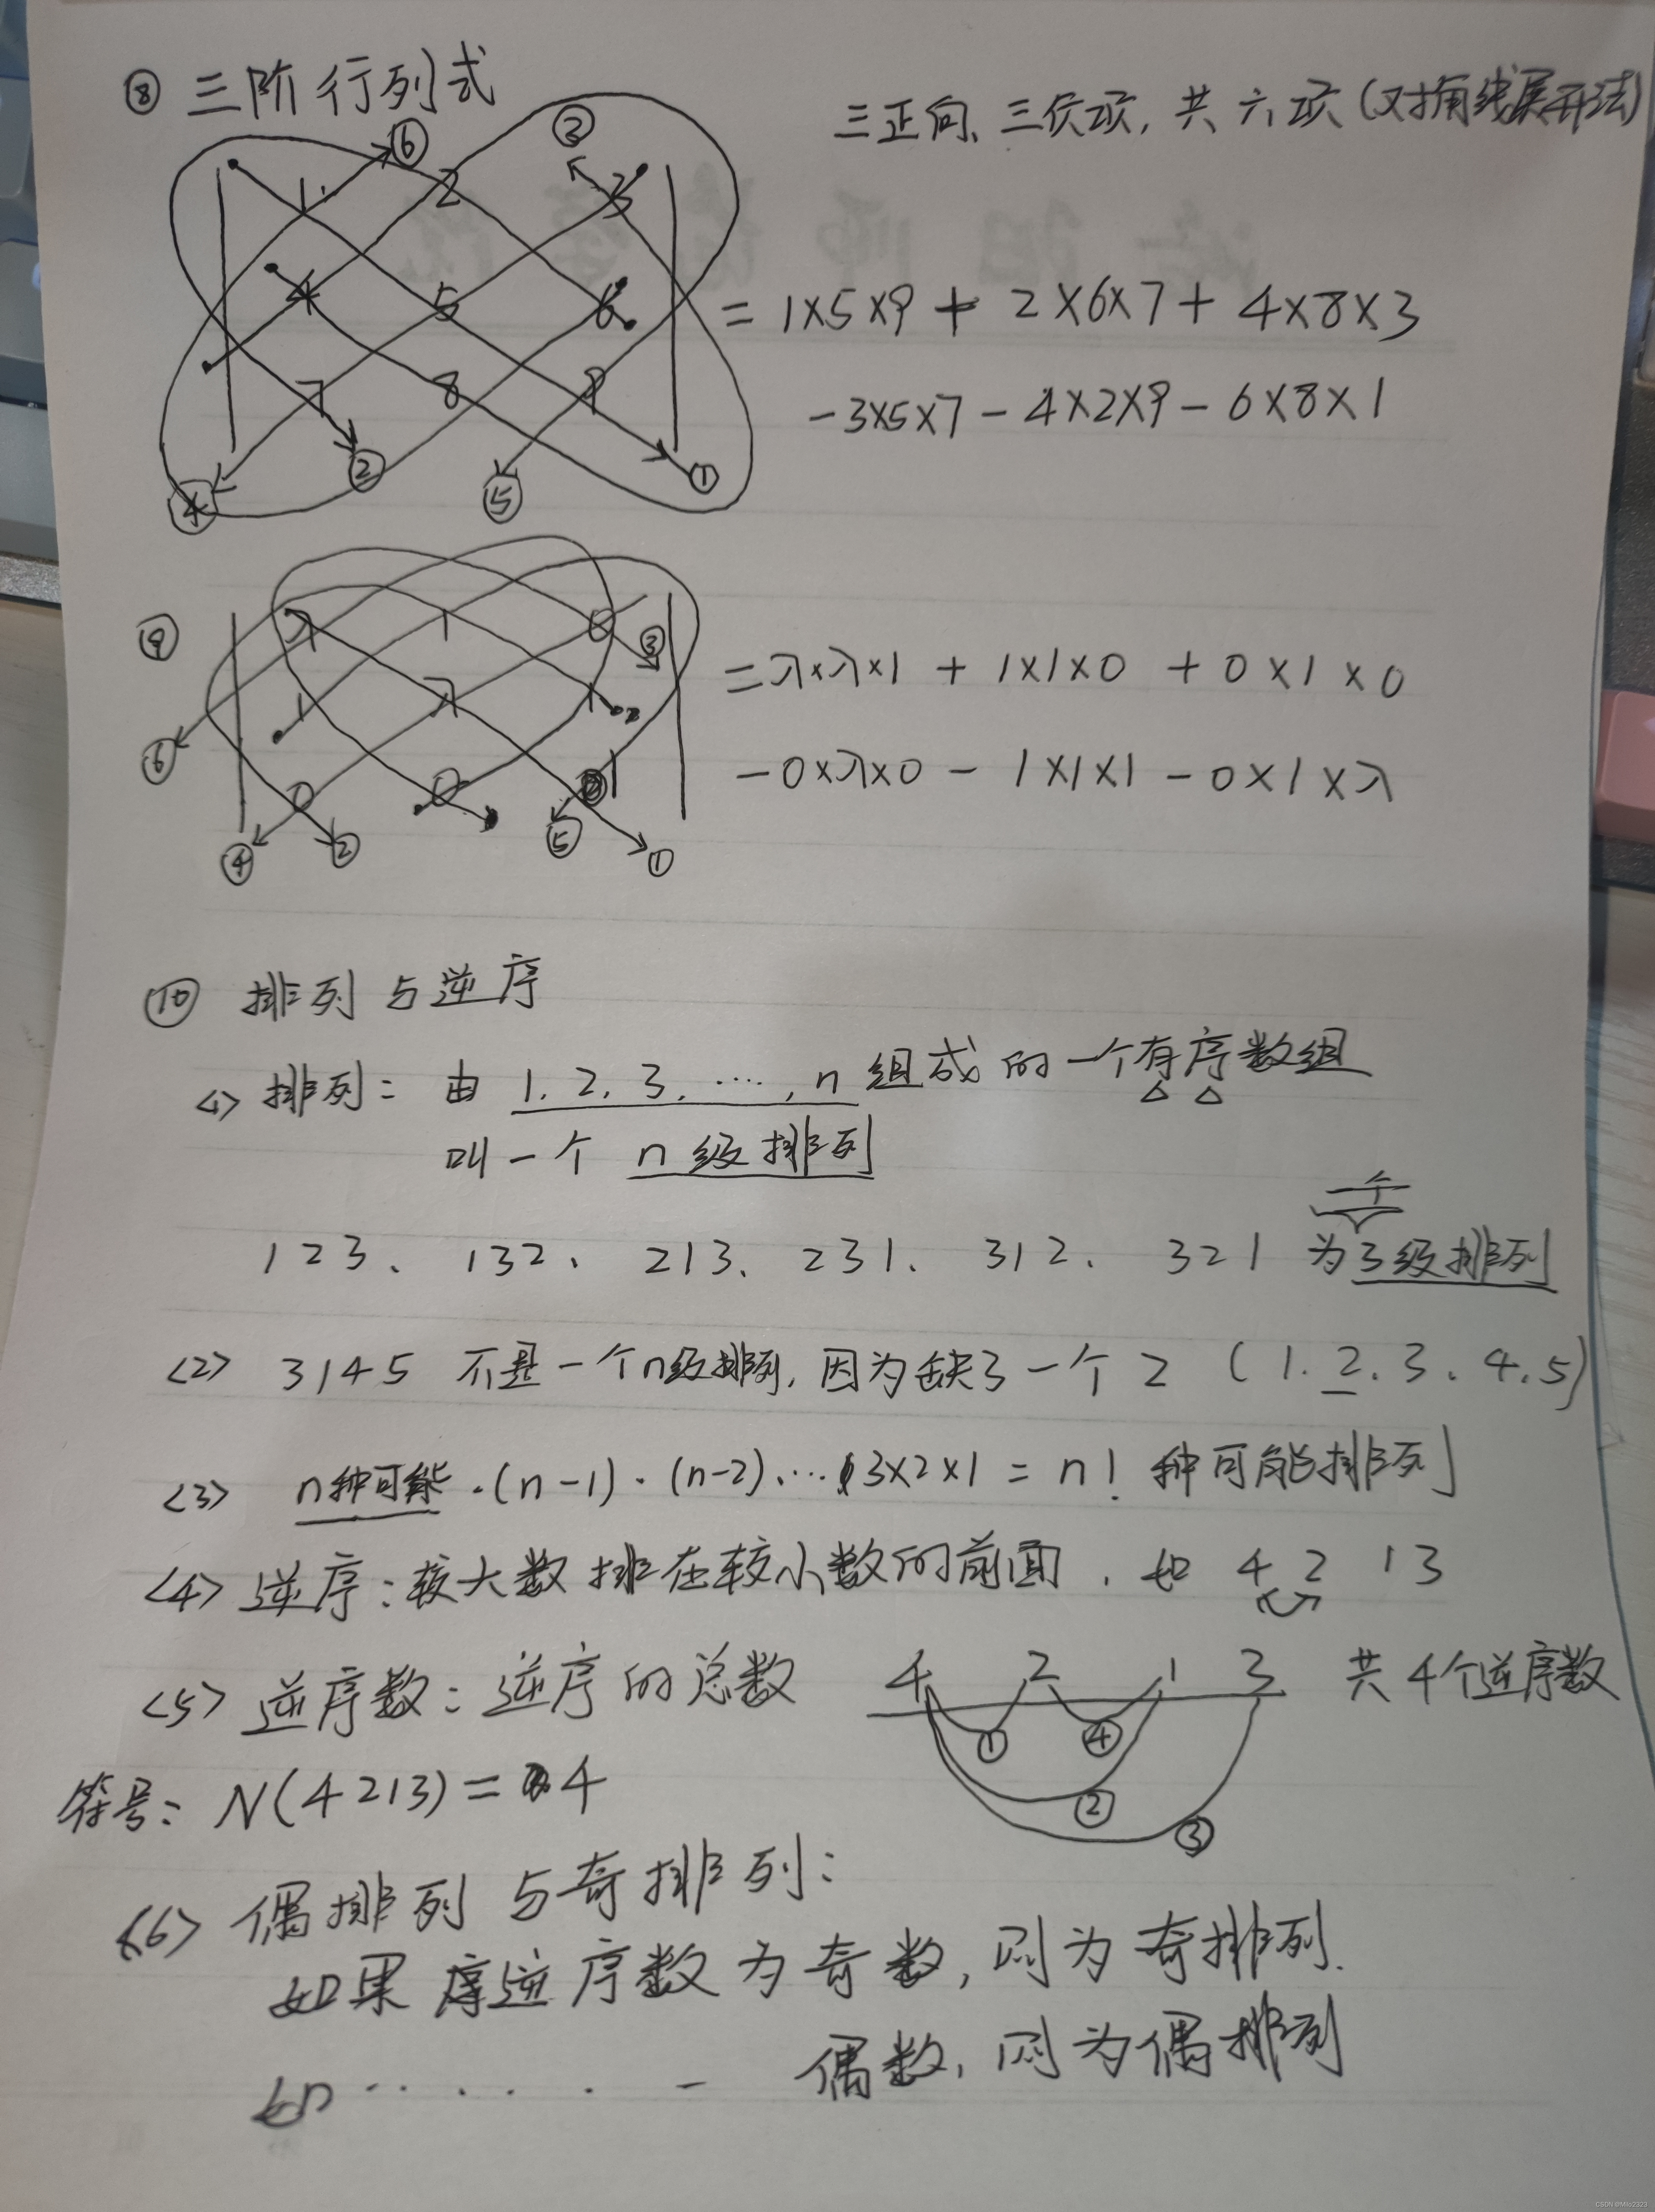 ⑧ 三阶行列式
三正向、三负项,共六项(对角线展开法)
⑥ ③
1 2 3
4 5 6
7 8 9
④ ② ⑤ ①
= 1×5×9 + 2×6×7 + 4×8×3
-3×5×7 - 4×2×9 - 6×8×1
⑨
λ 1 0 ③
1 λ 1
0 0 1
⑥ ④ ② ⑤ ①
= λ×λ×1 + 1×1×0 + 0×1×0
-0×λ×0 - 1×1×1 - 0×1×λ
⑩ 排列与逆序
<1> 排列: 由 1, 2, 3, ····, n 组成的一个有序数组
叫一个 n级排列
个
123、 132、 213、 231、 312、 321 为3级排列
<2> 3145 不是一个n级排列, 因为缺了一个 2 (1. 2. 3. 4. 5)
<3> n种可能·(n-1)·(n-2)····3×2×1 = n! 种可能排列
<4> 逆序: 较大数排在较小数的前面. 如 4 2 1 3
<5> 逆序数: 逆序的总数 4 2 1 3 共4个逆序数
① ④ ② ③
符号: N(4213) = 4
<6> 偶排列与奇排列:
如果逆序数为奇数, 则为奇排列.
如 · · · · · - 偶数, 则为偶排列
CSDN @Milo2323